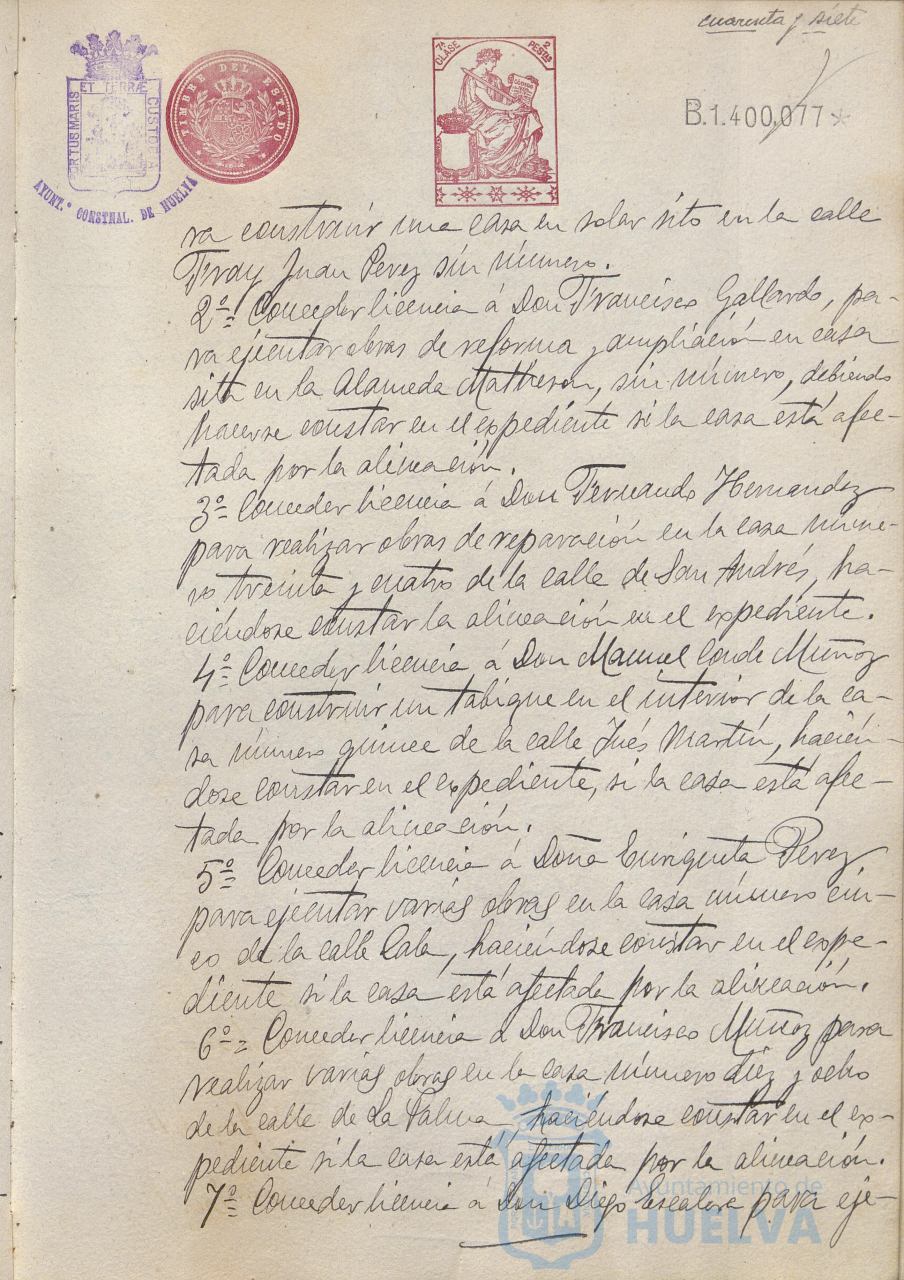 cuarenta y siete
ET TERRÆ
PORTUS MARIS
CUSTODIA
AYUNT.º CONSTNAL. DE HUELVA
TIMBRE DEL ESTADO
7ª CLASE
2 PESTAS
B.1.400,077
ra construir una casa en solar sito en la calle
Fray Juan Perez sin número.
2º= Conceder licencia á Don Francisco Gallardo, pa-
ra ejecutar obras de reforma y ampliación en casa
sita en la Alameda Matheson, sin número, debiendo
hacerse constar en el expediente si la casa está afec-
tada por la alineación.
3º= Conceder licencia á Don Fernando Hernandez
para realizar obras de reparación en la casa núme-
ro treinta y cuatro de la calle de San Andrés, ha-
ciéndose constar la alineación en el expediente.
4º= Conceder licencia á Don Manuel Conde Muñoz
para construir un tabique en el interior de la ca-
sa número quince de la calle Inés Martín, hacién-
dose constar en el expediente, si la casa está afec-
tada por la alineación.
5º= Conceder licencia á Doña Enriqueta Perez
para ejecutar varias obras en la casa número cin-
co de la calle Cala, haciéndose constar en el expe-
diente si la casa está afectada por la alineación.
6º= Conceder licencia á Don Francisco Muñoz para
realizar varias obras en la casa número diez y ocho
de la calle de La Palma haciéndose constar en el ex-
pediente si la casa está afectada por la alineación.
7º= Conceder licencia á Don Diego Escalera para eje-
Ayuntamiento de
HUELVA